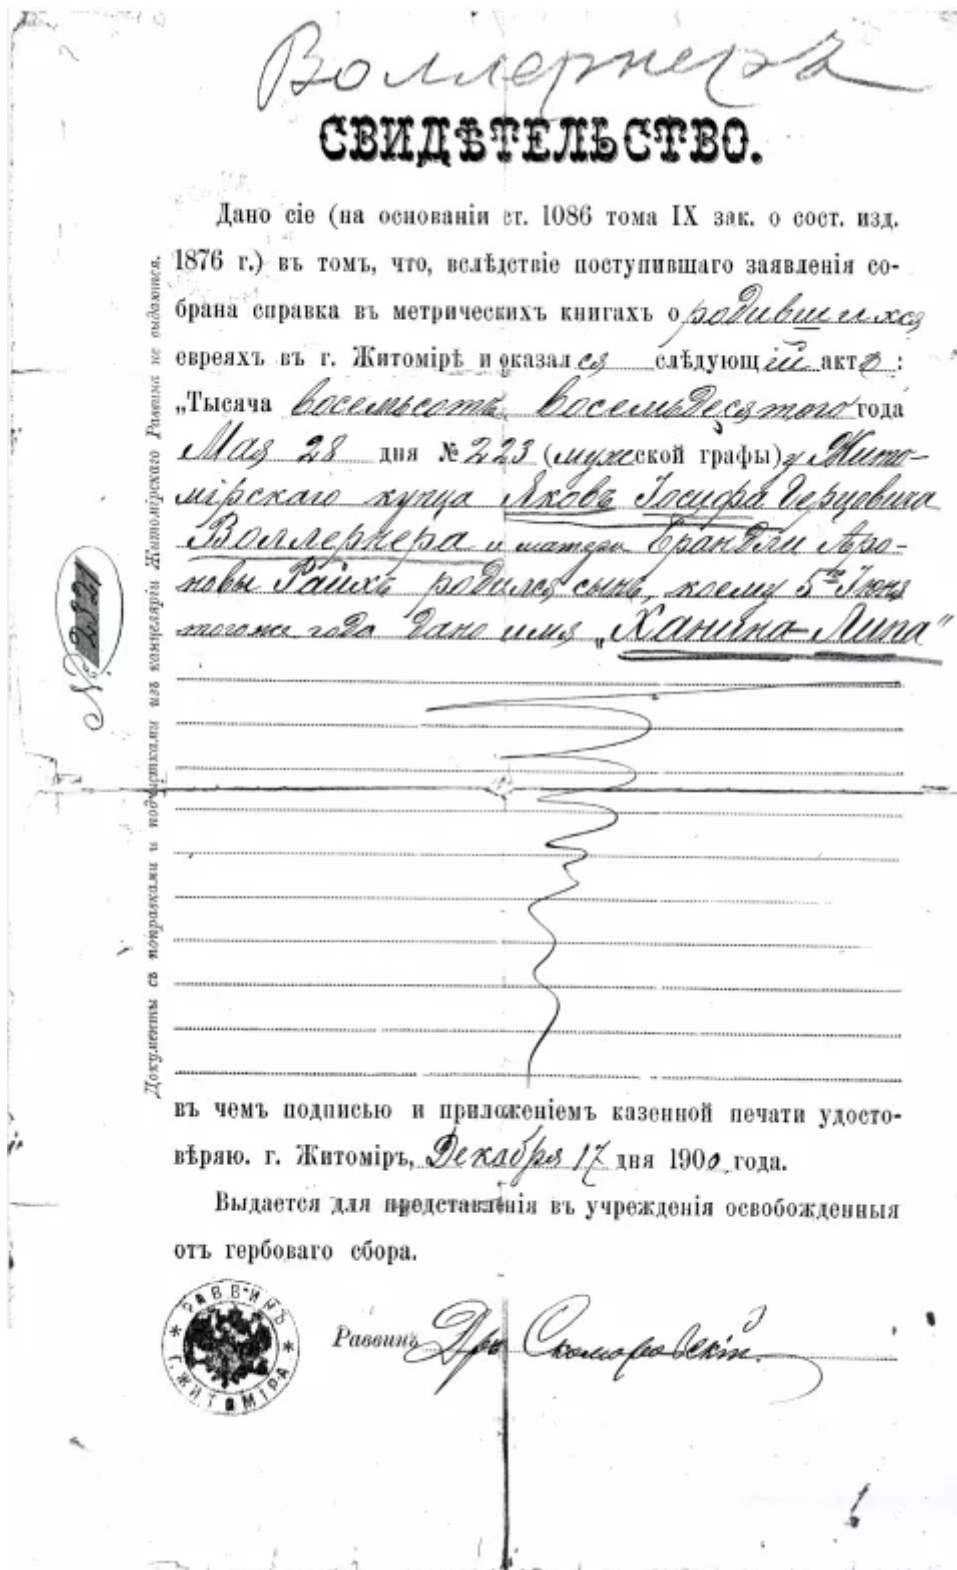 Воллернеръ
СВИДѢТЕЛЬСТВО.
Дано сіе (на основаніи ст. 1086 тома IX зак. о сост. изд.
1876 г.) въ томъ, что, вслѣдствіе поступившаго заявленія со-
брана справка въ метрическихъ книгахъ о родившихся
евреяхъ въ г. Житомірѣ и оказался слѣдующій актъ:
„Тысяча восемьсотъ восемьдесятого года
Мая 28 дня № 223 (мужеской графы) у Жито-
мірскаго купца Яковъ Іосифа Герцовича
Воллернера и матери Брандли Аро-
новы Райхъ родился сынъ, коему 5го Іюня
того же года дано имя „Ханина-Липа"
въ чемъ подписью и приложеніемъ казенной печати удосто-
вѣряю. г. Житоміръ, Декабря 17 дня 1900 года.
Выдается для представленія въ учрежденія освобожденныя
отъ гербоваго сбора.
Раввинъ Дръ Скомаровскій
РАВВИНЪ * Г. ЖИТОМІРА *
Документы съ поправками и подчистками изъ канцеляріи Житомірскаго Раввина не выдаются.
№